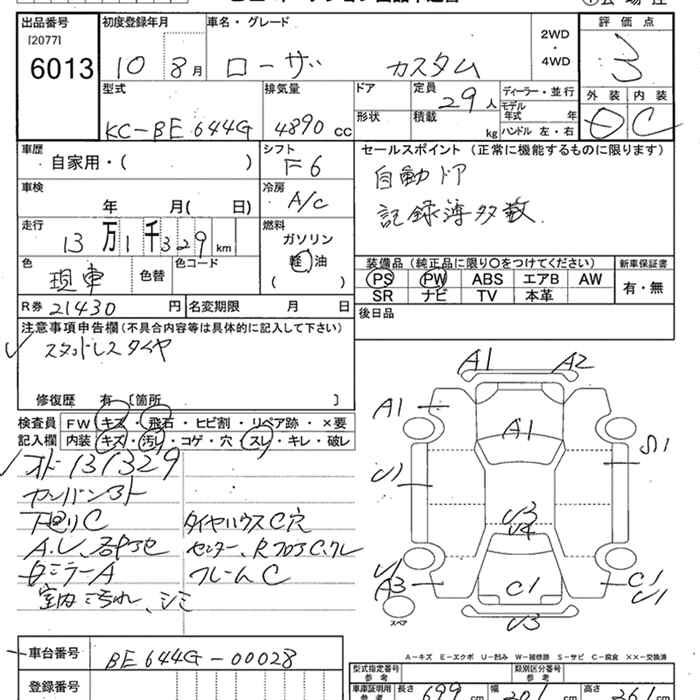 出品番号
[2077]
6013
初度登録年月
10 8月
車名・グレード
ローザ カスタム
2WD
・
4WD
評価点
3
外装 内装
C
型式
KC-BE 644G
排気量
4890 cc
ドア
形状
定員
29人
積載
kg
ディーラー・並行
モデル年式 年
ハンドル 左・右
車歴
自家用・( )
シフト
F6
セールスポイント (正常に機能するものに限ります)
自動ドア
記録簿多数.
車検
年 月( 日)
冷房
A/C
走行
13万1千329km
燃料
ガソリン
軽油
( )
色
現車
色替
色コード
装備品 (純正品に限り○をつけてください)
PS PW ABS エアB AW
SR ナビ TV 本革
新車保証書
有・無
R券 21430 円
名変期限 月 日
後日品
注意事項申告欄 (不具合内容等は具体的に記入して下さい)
スタッドレスタイヤ
修復歴 有 〔箇所 〕
検査員
記入欄
FW キズ・飛石・ヒビ割・リペア跡・×要
内装 キズ・汚レ・コゲ・穴・スレ・キレ・破レ
オド131329
下回りC
タイヤハウスC穴
ミラーA
フレームC
室内汚れ、シミ
A1 A2
A1
A1
U3
U4
A3
C1
C1
U1
U3
スペア
A-キズ E-エクボ U-凹み W-補修跡 S-サビ C-腐食 ××-交換済
車台番号
BE 644G-00028
登録番号
型式指定番号
参考
類別区分番号
参考
車庫証明用
参考
長さ 699 cm
幅 201 cm
高さ 261 cm